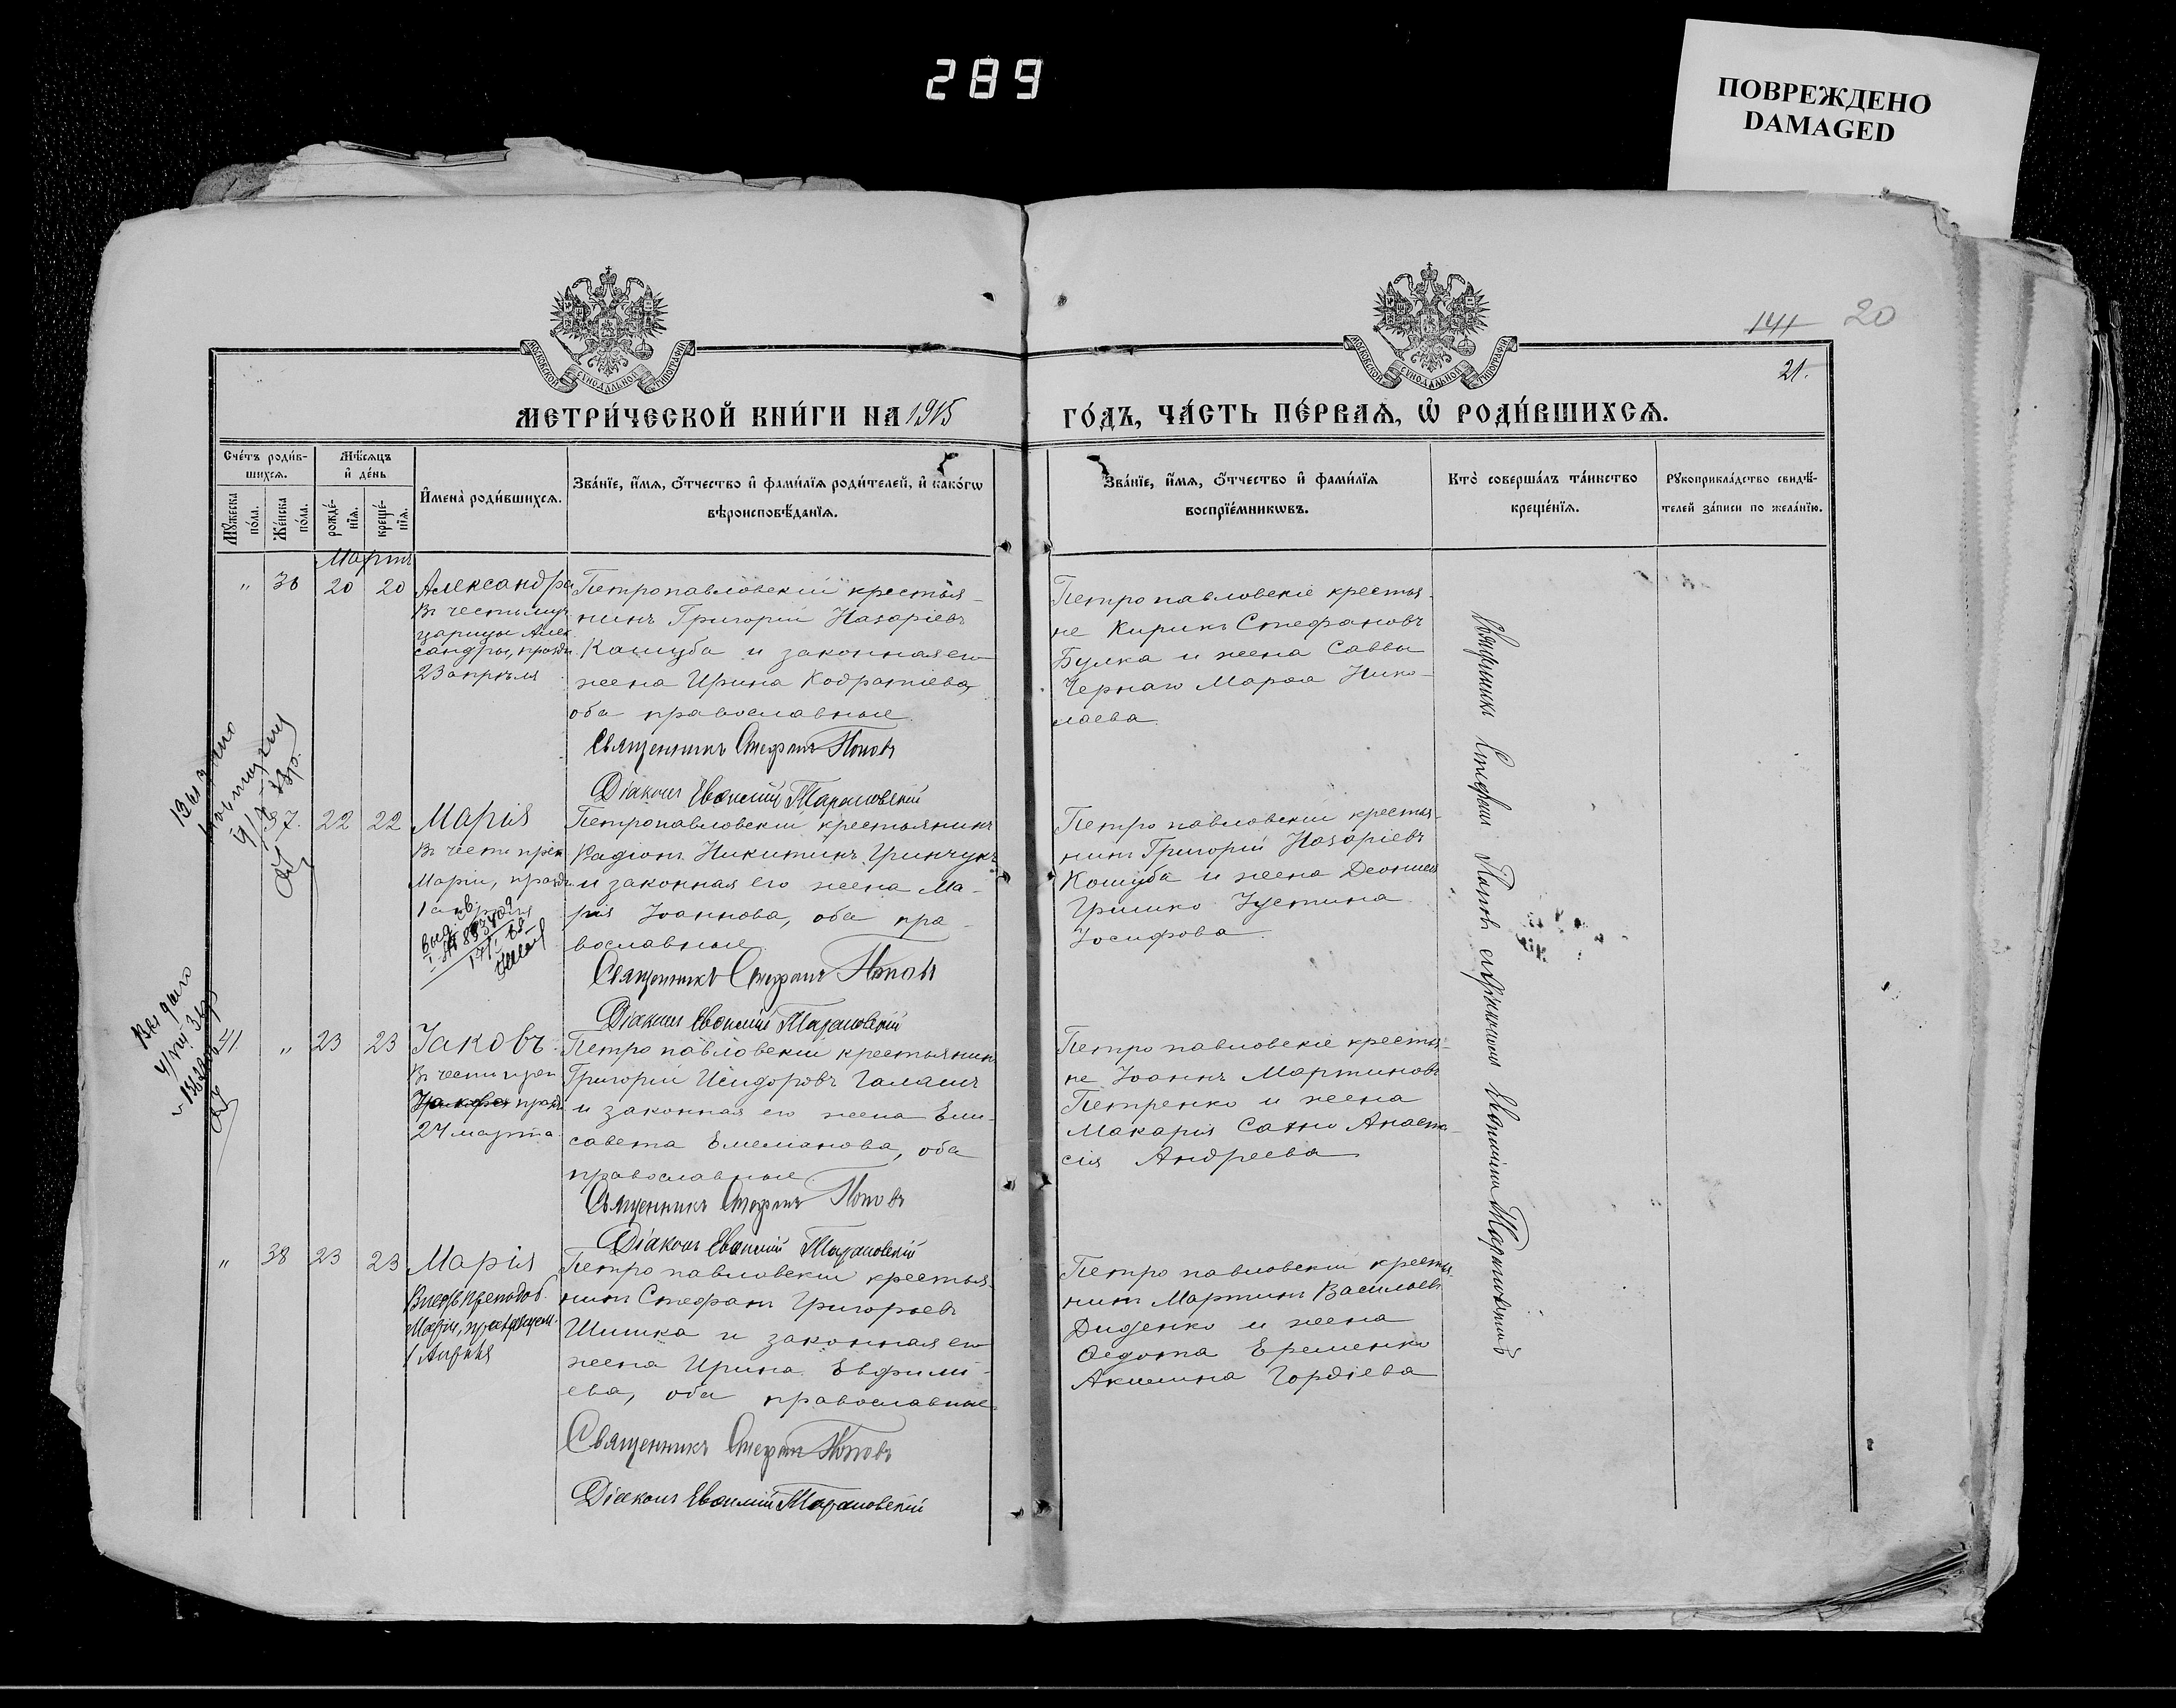 289
ПОВРЕЖДЕНО
DAMAGED
141 20
21.
МОСКОВСКОЙ СѴНОДАЛЬНОЙ ТИПОГРАФІИ
МОСКОВСКОЙ СѴНОДАЛЬНОЙ ТИПОГРАФІИ
МЕТРИ́ЧЕСКОЙ КНИ́ГИ НА 1915
ГО́ДЪ, ЧА́СТЬ ПЕ́РВАѦ, Ѡ҆ РОДИ́ВШИХСѦ.
Сче́тъ роди́в-
шихсѧ.
Мꙋ́жеска
по́ла.
Же́нска
по́ла.
Мѣ́сѧцъ
и҆ де́нь
рожде́-
нїѧ.
креще́-
нїѧ.
И҆мена̀ роди́вшихсѧ.
Зва́нїе, и҆́мѧ, ѻ҆́тчество и҆ фами́лїѧ роди́телей, и҆ како́гѡ
вѣроисповѣ́данїѧ.
Зва́нїе, и҆́мѧ, ѻ҆́тчество и҆ фами́лїѧ
воспрїе́мникѡвъ.
Кто̀ соверша́лъ та́инство
креще́нїѧ.
Рꙋкоприкла́дство свидѣ́-
телей за́писи по жела́нїю.
Мартъ
" 36 20 20 Александра
Въ честь муч.
царицы Алек
сандры, праздн.
23 апрѣля
Петропавловскій крестья-
нинъ Григорій Назаріевъ
Кошуба и законная его
жена Ирина Кодратіева,
оба православные.
Священникъ Стефанъ Поповъ
Діаконъ Евѳимій Тарановскій
Петропавловскіе крестья-
не Кирикъ Стефановъ
Булка и жена Саввы
Чернаго Марѳа Нико-
лаева.
37. 22 22 Марія
Въ честь преп
Маріи, праздн.
1 апрѣля
Петропавловскій крестьянинъ
Радіонъ Никитинъ Гринчукъ
и законная его жена Ма-
рія Іоаннова, оба пра-
вославные.
Священникъ Стефанъ Поповъ
Діаконъ Евѳимій Тарановскій
Петропавловскій крестья-
нинъ Григорій Назаріевъ
Кошуба и жена Деонисія
Гришко Іустина
Іосифова.
41 " 23 23 Іаковъ
Въ честь преп
Іакова праздн
24 марта
Петропавловскій крестьянинъ
Григорій Исидоровъ Галашъ
и законная его жена Ели-
савета Емеліанова, оба
православные
Священникъ Стефанъ Поповъ
Діаконъ Евѳимій Тарановскій
Петропавловскіе крестья-
не Іоаннъ Мартиновъ
Петренко и жена
Макарія Сахно Анаста-
сія Андреева
" 38 23 23 Марія
Въ честь преподоб.
Маріи, празднуем.
1 Апрѣля
Петропавловскій крестья-
нинъ Стефанъ Григорьевъ
Шишка и законная его
жена Ирина Евфимі-
ева, оба православные
Священникъ Стефанъ Поповъ
Діаконъ Евѳимій Тарановскій
Петропавловскій крестья-
нинъ Мартинъ Васильевъ
Диденко и жена
Ѳедота Еременко
Акилина Гордіева
Священникъ Стефанъ Поповъ съ діакономъ Евѳиміемъ Тарановскимъ